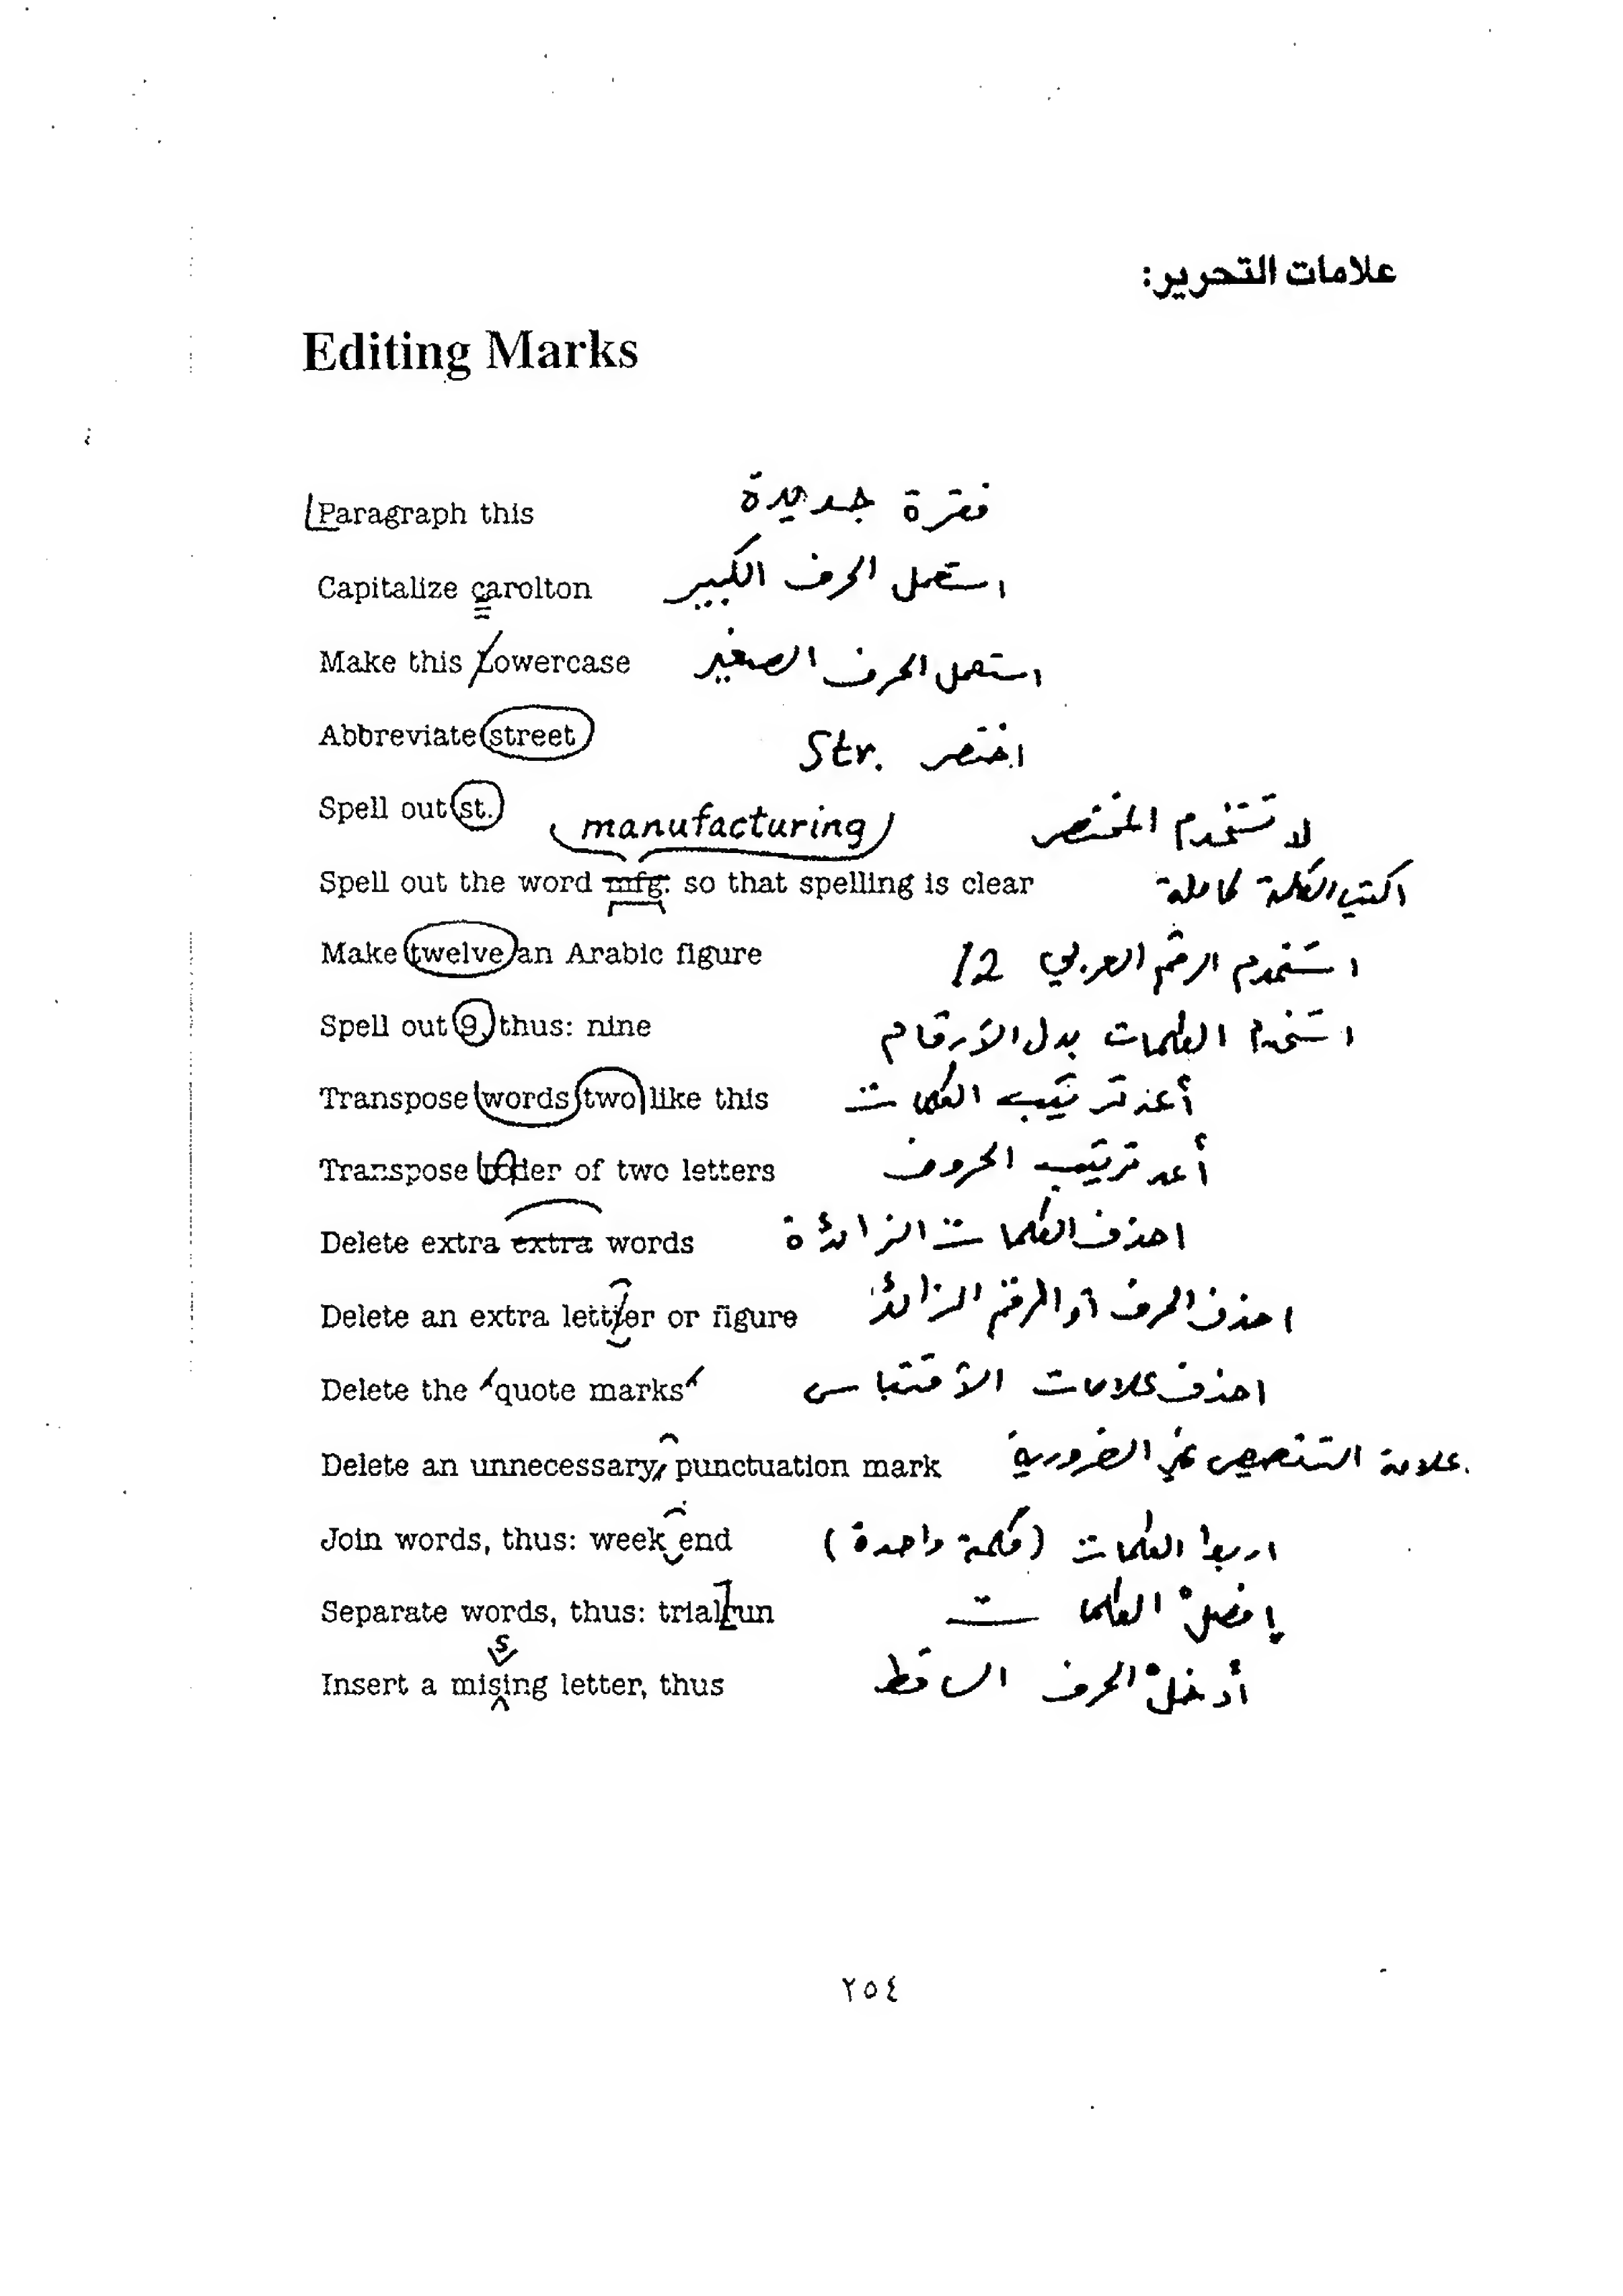 علامات التحرير:
Editing Marks
Paragraph this فقرة جديدة
Capitalize carolton استعمل الحرف الكبير
Make this Lowercase استعمل الحرف الصغير
Abbreviate street اختصر Str.
Spell out st. لا تستخدم المختصر
manufacturing
Spell out the word mfg. so that spelling is clear اكتب الكلمة كاملة
Make twelve an Arabic figure استخدم الرقم العربي 12
Spell out 9, thus: nine استخدم الكلمات بدل الأرقام
Transpose words two like this أعد ترتيب الكلمات
Transpose roder of two letters أعد ترتيب الحروف
Delete extra extra words احذف الكلمات الزائدة
Delete an extra lettter or figure احذف الحرف أو الرقم الزائد
Delete the "quote marks" احذف علامات الأقتباس
Delete an unnecessary, punctuation mark علامة التنصيص غير الضرورية
Join words, thus: week end اربط الكلمات (كلمة واحدة)
Separate words, thus: trialrun افصل الكلمات
s
Insert a mising letter, thus أدخل الحرف الساقط
٢٥٤